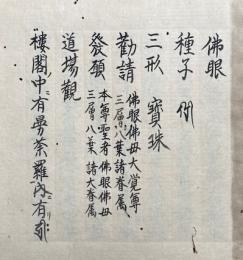 佛眼
種子
三形 寶珠
勸請 佛眼佛母大覚尊
三層八葉諸眷属
發願 本尊聖者佛眼佛母
三層八葉諸大眷属
道場觀
樓閣中ニ有曼荼羅內ニ有